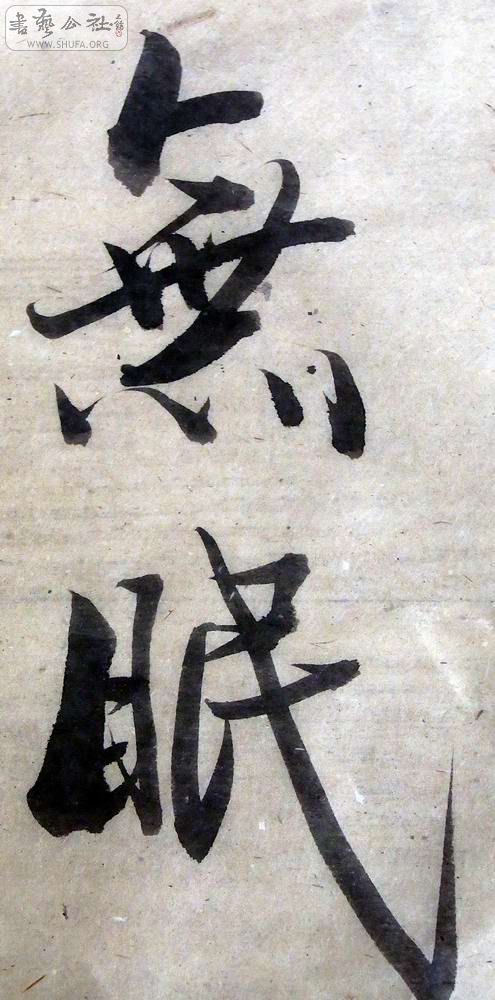 書藝公社
WWW.SHUFA.ORG
無
眠